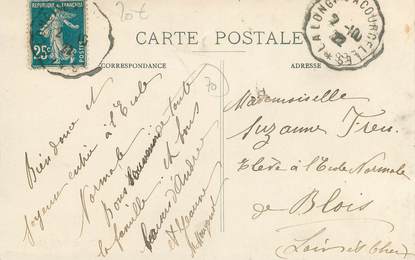 REPUBLIQUE FRANÇAISE
25c
POSTES
20 €
CARTE POSTALE
CORRESPONDANCE
ADRESSE
2 -10
22
70
Bien douce et
joyeuse entrée à l'Ecole
Normale
bons souvenirs de toute
la famille et bons
baisers d'André
et Jeanne
Mademoiselle
Suzanne
Elève à l'Ecole Normale
de Blois
Loir et Cher